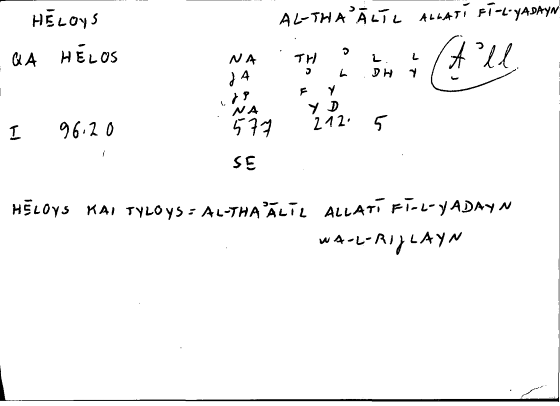 HĒLOYS AL-THAʾĀLĪL ALLATĪ FĪ-L-YADAYN
QA HĒLOS NA TH ʾ L L Aʾll
JA ʾ L DH Y
JP F Y
NA Y D
I 96.20 577 212. 5
SE
HĒLOYS KAI TYLOYS = AL-THAʾĀLĪL ALLATĪ FĪ-L-YADAYN
WA-L-RIJLAYN